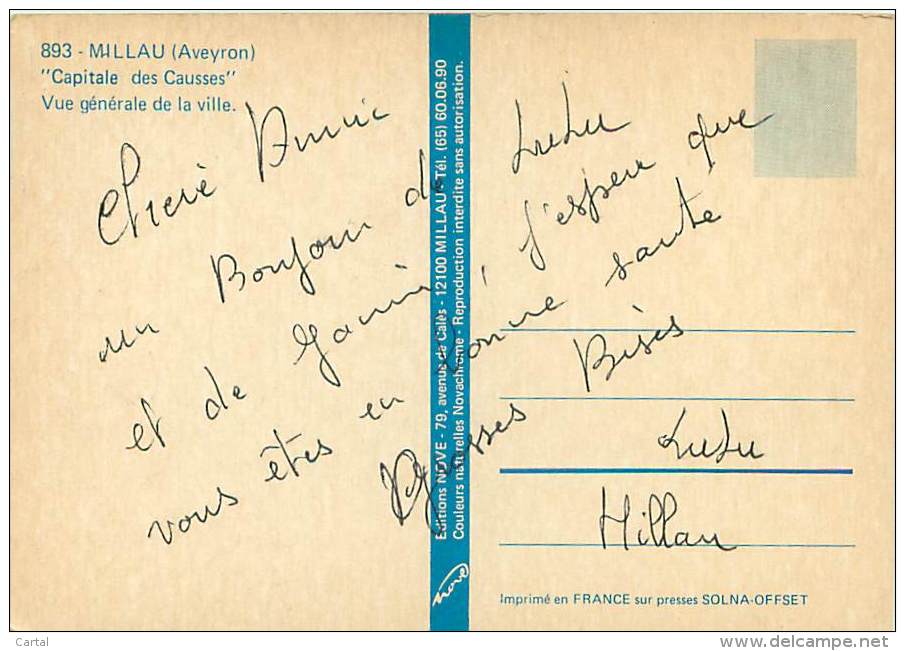 893 - MILLAU (Aveyron)
"Capitale des Causses"
Vue générale de la ville.
Editions NOVE - 79, avenue de Calès - 12100 MILLAU - Tél. (65) 60.06.90
Couleurs naturelles Novachrome - Reproduction interdite sans autorisation.
nove
Cheré Annie
un Bonjour de Lulu
et de, j'espère que
vous êtes en bonne santé
Grosses Bises
Lulu
Millau
Imprimé en FRANCE sur presses SOLNA-OFFSET
Cartal
www.delcampe.net